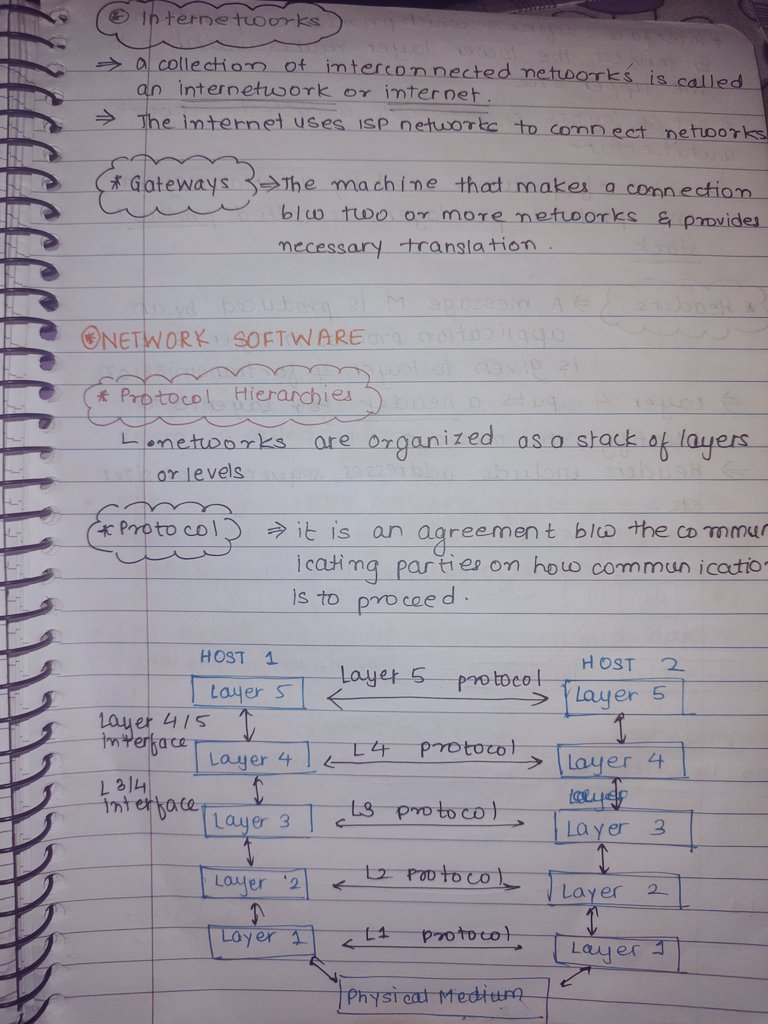 * Internetworks
⇒ a collection of interconnected networks is called
an internetwork or internet.
⇒ The internet uses ISP networks to connect networks
* Gateways ⇒ The machine that makes a connection
b/w two or more networks & provides
necessary translation.
* NETWORK SOFTWARE
* Protocol Hierarchies
↳ • networks are organized as a stack of layers
or levels
* Protocol ⇒ it is an agreement b/w the commun
icating parties on how communicatio
is to proceed.
HOST 1 HOST 2
Layer 5 Layer 5 protocol Layer 5
Layer 4/5
interface
Layer 4 L4 protocol Layer 4
L3/4
interface
Layer 3 L3 protocol Layer 3
Layer 2 L2 protocol Layer 2
Layer 1 L1 protocol Layer 1
Physical Medium